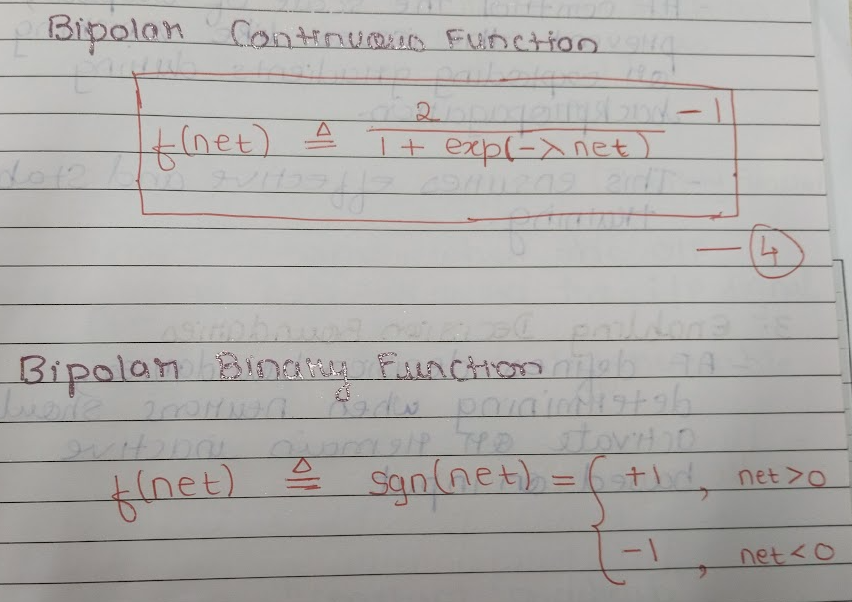 Bipolar Continuous Function
f(net) ≜ 2 / (1 + exp(-λ net)) - 1
— ④
Bipolar Binary Function
f(net) ≜ sgn(net) = { +1 , net > 0
-1 , net < 0